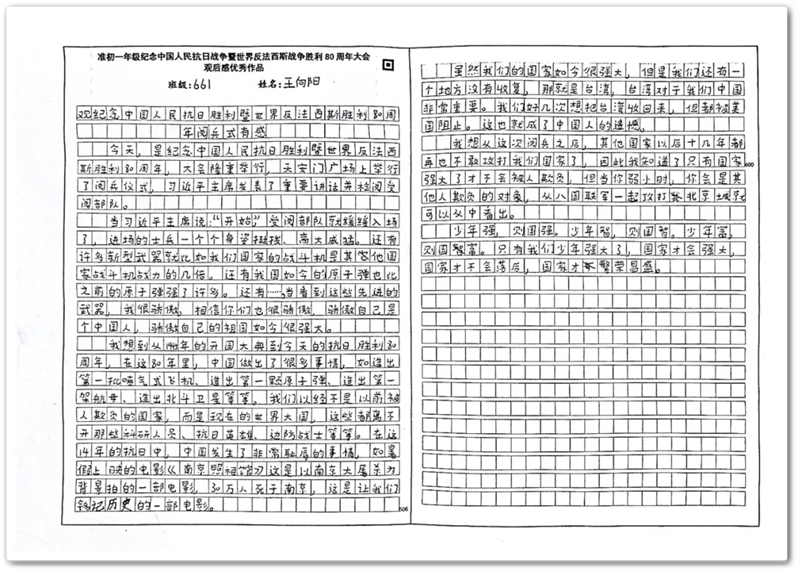 准初一年级纪念中国人民抗日战争暨世界反法西斯战争胜利 80 周年大会
观后感优秀作品
班级:661 姓名:王向阳
观纪念中国人民抗日胜利暨世界反法西斯胜利80周
年阅兵式有感
今天,是纪念中国人民抗日胜利暨世界反法西
斯胜利80周年,大会隆重举行,天安门广场上举行
了阅兵仪式,习近平主席发表了重要讲话并检阅受
阅部队。
当习近平主席说:“开始”,受阅部队就缓缓入场
了,进场的士兵一个个身姿挺拔、高大威猛。还有
许多新型武器就比如我们国家的战斗机是其他国
家战斗机战力的几倍。还有我国如今的原子弹也比
之前的原子弹强了许多。还有……当看到这些先进的
武器,我很骄傲,相信你们也很骄傲,骄傲自己是
个中国人,骄傲自己的祖国如今很强大。
我想到从1949年的开国大典到今天的抗日胜利80
周年,在这80年里,中国做出了很多事情,如造出
第一批喷气式飞机、造出第一颗原子弹、造出第一
架航母、造出北斗卫星等等。我们以经不是以前被
人欺负的国家,而是现在的世界大国,这些都离不
开那些科研人员、抗日英雄、边防战士等等。在这
14年的抗日中,中国发生了非常耻辱的事情,如暑
假上映的电影《南京照相馆》这是以南京大屠杀为
背景拍的一部电影,30万人死于南京,这是让我们
铭记历史的一部电影。
606
虽然我们的国家如今很强大,但是我们还有一
个地方没有收复,那就是台湾,台湾对于我们中国
非常重要。我们好几次想把台湾收回来,但都被美
国阻止。这也就成了中国人的遗憾。
我想从这次阅兵之后,其他国家以后十几年都
再也不敢攻打我们国家了,因此我知道了只有国家
600
强大了才不会被人欺负,但当你弱小时,你会是其
他人欺负的对象,从八国联军一起攻打北京城就
可以从中看出。
少年强,则国强。少年智,则国智。少年富,
则国富。只有我们少年强大了,国家才会强大,
国家才不会落后,国家才繁荣昌盛。